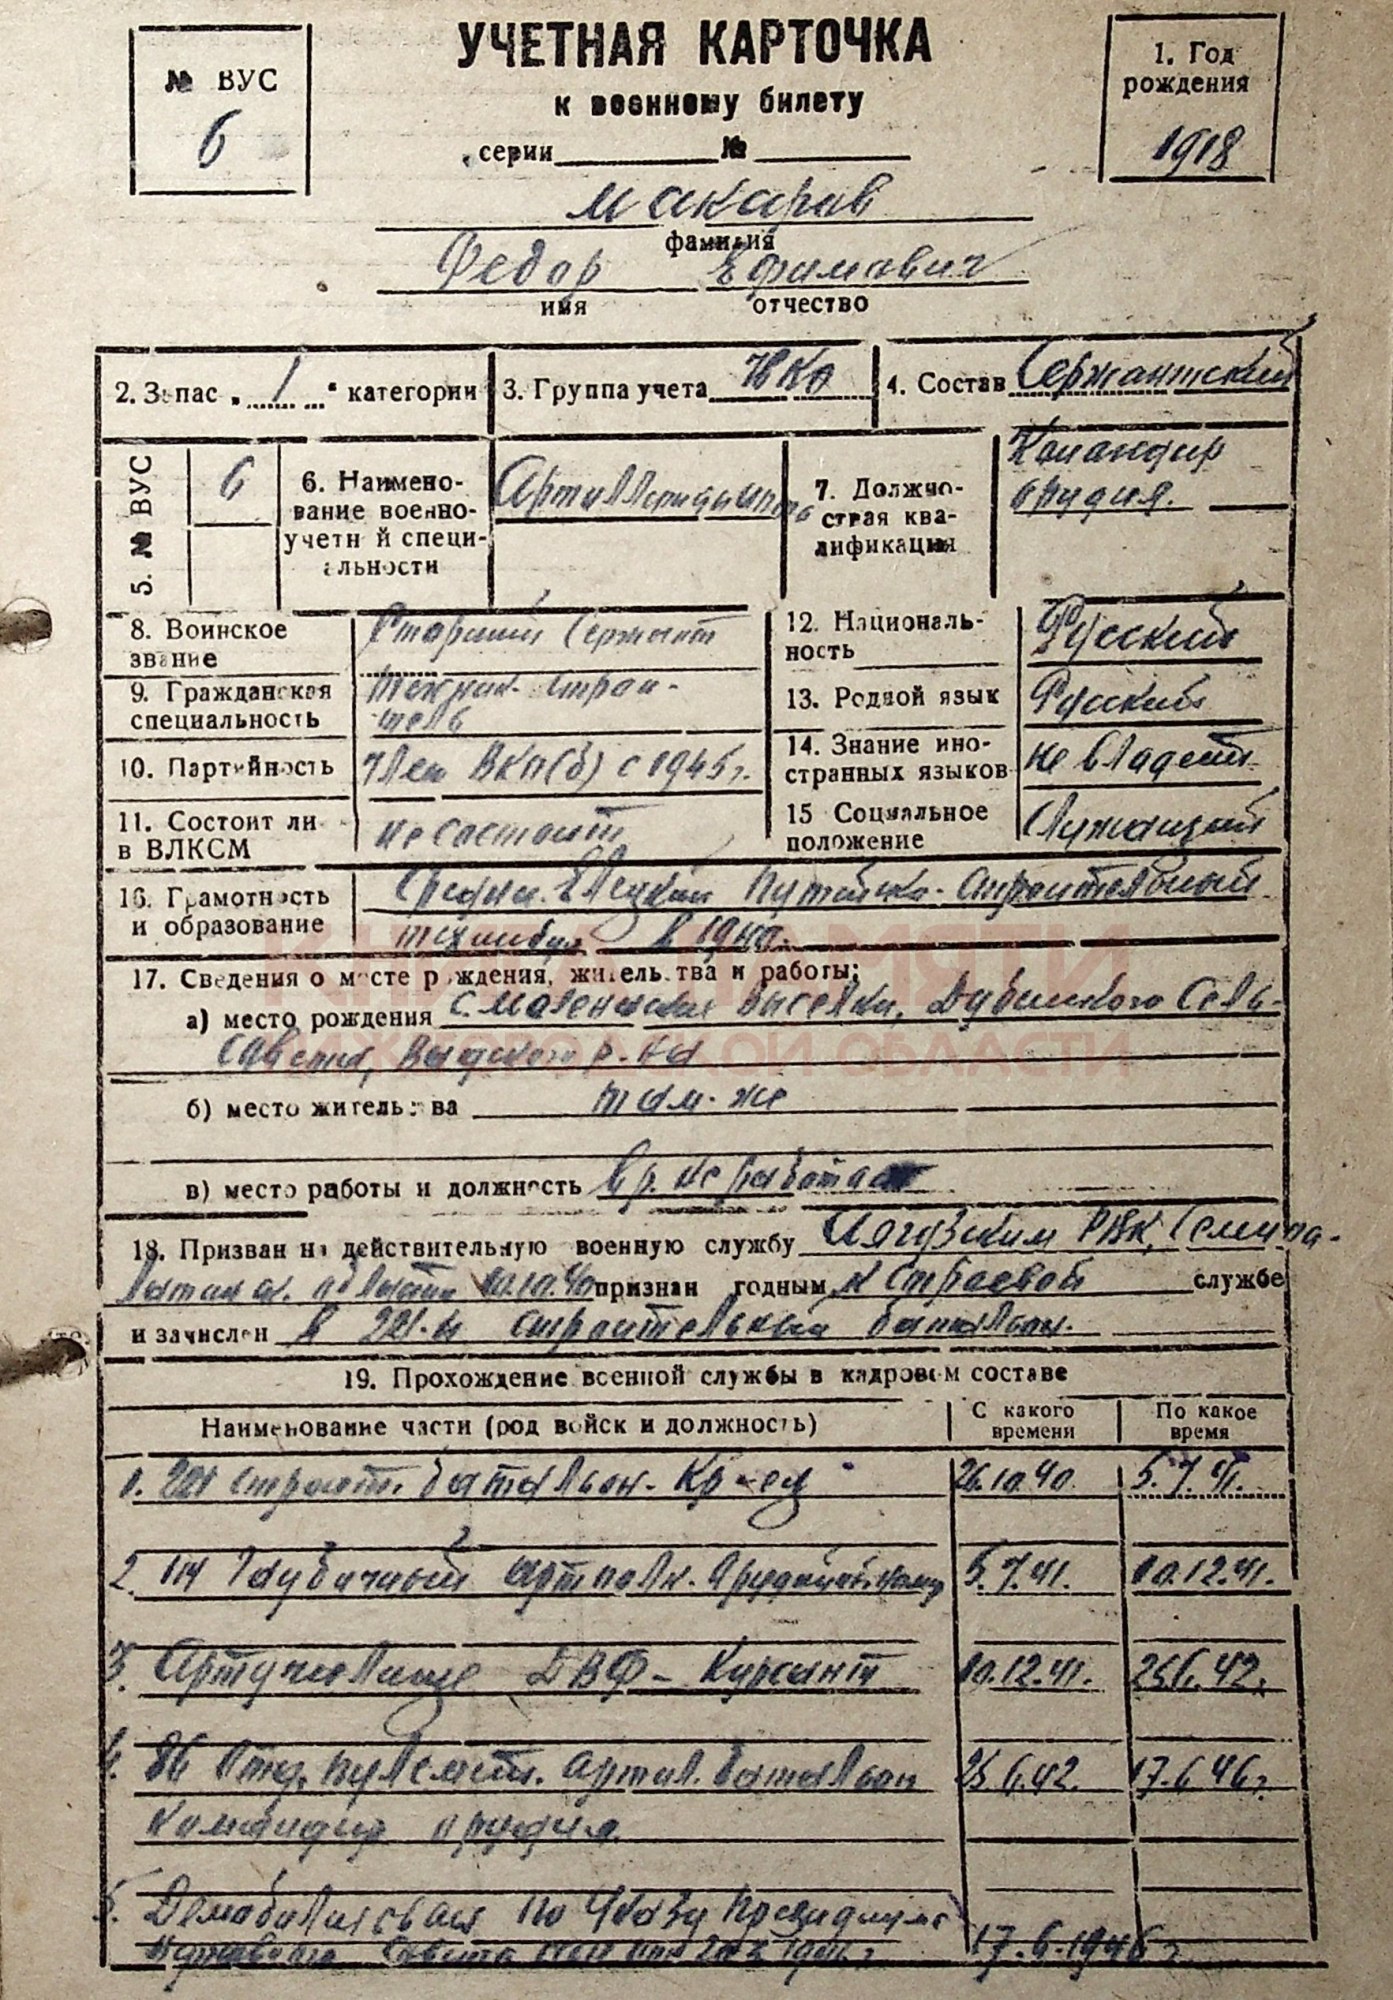 УЧЕТНАЯ КАРТОЧКА
к военному билету
серии № 
№ ВУС
6
1. Год
рождения
1918
Макаров
фамилия
Федор Ефимович
имя отчество
2. Запас „1“ категории 3. Группа учета НКО 4. Состав Сержантский
5. № ВУС
6
6. Наимено-
вание военно-
учетн й специ-
альности
Артиллерийская
7. Должно-
стная ква-
лификация
Командир
орудия.
8. Воинское
звание
Старший Сержант
9. Гражданская
специальность
Техник-строи-
тель
10. Партийность
Член ВКП(б) с 1945 г.
11. Состоит ли
в ВЛКСМ
не состоит
12. Националь-
ность
Русский
13. Родной язык
Русский
14. Знание ино-
странных языков
не владеет
15 Социальное
положение
Служащий
16. Грамотность
и образование
Средн. Елецкий Путейско-строительный
техникум в 1940.
КНИГА ПАМЯТИ
НИЖЕГОРОДСКОЙ ОБЛАСТИ
17. Сведения о месте рождения, жительства и работы:
а) место рождения с. выселки, Сель-
Совета, р-на
б) место жительства там-же
в) место работы и должность вр. не работает
18. Призван на действительную военную службу Аягузским РВК, Семипа-
латинск. области 10.10.40 признан годным к строевой службе
и зачислен в 221-й строительный батальон.
19. Прохождение военной службы в кадровом составе
Наименование части (род войск и должность)
С какого
времени
По какое
время
1. 221 строит. батальон - Кр-ец 26.10.40 5.7.41.
2. артполк. 5.7.41. 10.12.41.
3. Артучилище ДВФ - Курсант 10.12.41. 25.6.42.
4. 86 Отд. пулемет. артил. батальон 25.6.42. 17.6.46 г.
Командир орудия
5. Демобилизован по Указу Президиума
Верховного Совета 17.6.1946 г.